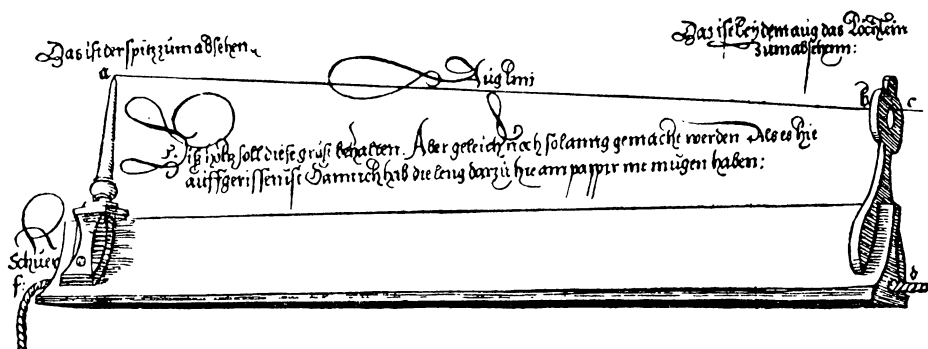 Das ist der spitz zum absehen.
Das ist bey dem aug das Löchlein
zum absehenn:
a
Auglini
b
c
Diß holtz soll diese gröss behalten. Aber geleich noch so lanng gemacht werden Als es hie
auffgerissen ist Dann ich hab die leng darzu hie am pappir nit mügen haben:
Schnuer
f:
d